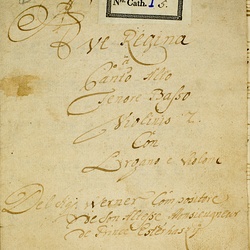 No. Cath. 1 5.
Ave Regina
a
Canto Alto
Tenore Basso
Violinis 2.
Con
Organo e Violone
Del sig. Werner Compositore
de Son Altesse Monseigneur
de Prince Esterhasy